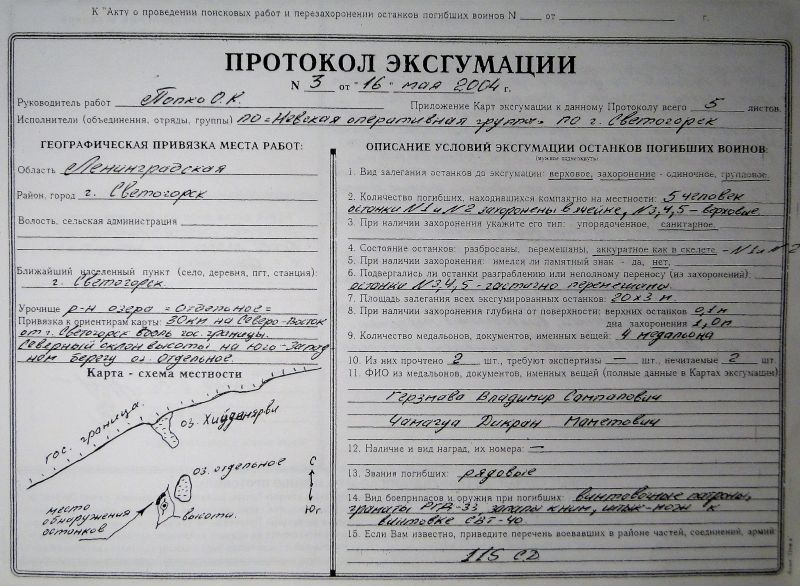 К "Акту о проведении поисковых работ и перезахоронении останков погибших воинов N ___ от ___ г.
ПРОТОКОЛ ЭКСГУМАЦИИ
N 3 от "16" мая 2004 г.
Руководитель работ Попко О.К.
Приложение Карт эксгумации к данному Протоколу всего 5 листов.
Исполнители (объединения, отряды, группы) ПО "Невская оперативная группа" ПО г. Светогорск
ГЕОГРАФИЧЕСКАЯ ПРИВЯЗКА МЕСТА РАБОТ:
Область Ленинградская
Район, город г. Светогорск
Волость, сельская администрация
Ближайший населенный пункт (село, деревня, пгт, станция):
г. Светогорск
Урочище р-н озера "Отдельное"
Привязка к ориентирам карты: 30 км на Северо-Восток
от г. Светогорск вдоль гос. границы.
Северный склон высоты на юго-запад
нем берегу оз. Отдельное.
Карта - схема местности
гос. граница.
оз.
оз. отдельное
С
Юг
место
обнаружения
останков
высота.
ОПИСАНИЕ УСЛОВИЙ ЭКСГУМАЦИИ ОСТАНКОВ ПОГИБШИХ ВОИНОВ:
(нужное подчеркнуть)
1. Вид залегания останков до эксгумации: верховое, захоронение - одиночное, групповое.
2. Количество погибших, находившихся компактно на местности: 5 человек
останки N1 и N2 захоронены в ячейке, N3,4,5 - верховые.
3. При наличии захоронения укажите его тип: упорядоченное, санитарное.
4. Состояние останков: разбросаны, перемешаны, аккуратное как в скелете - N1 и N2
5. При наличии захоронения: имелся ли памятный знак - да, нет.
6. Подвергались ли останки разграблению или неполному переносу (из захоронений):
останки N3,4,5 - частично перемешаны.
7. Площадь залегания всех эксгумированных останков: 20х3 м.
8. При наличии захоронения глубина от поверхности: верхних останков 0,1м
дна захоронения 1,0м
9. Количество медальонов, документов, именных вещей: 4 медальона
10. Из них прочтено 2 шт., требуют экспертизы — шт., нечитаемые 2 шт.
11. ФИО из медальонов, документов, именных вещей (полные данные в Картах эксгумации)
Герзмава Владимир
Чамагуа Дикран Маметович
12. Наличие и вид наград, их номера: —
13. Звания погибших: рядовые
14. Вид боеприпасов и оружия при погибших: винтовочные патроны,
гранаты РГД-33, запалы к ним, штык-нож к
винтовке СВТ-40
15. Если Вам известно, приведите перечень воевавших в районе частей, соединений, армий
115 СД